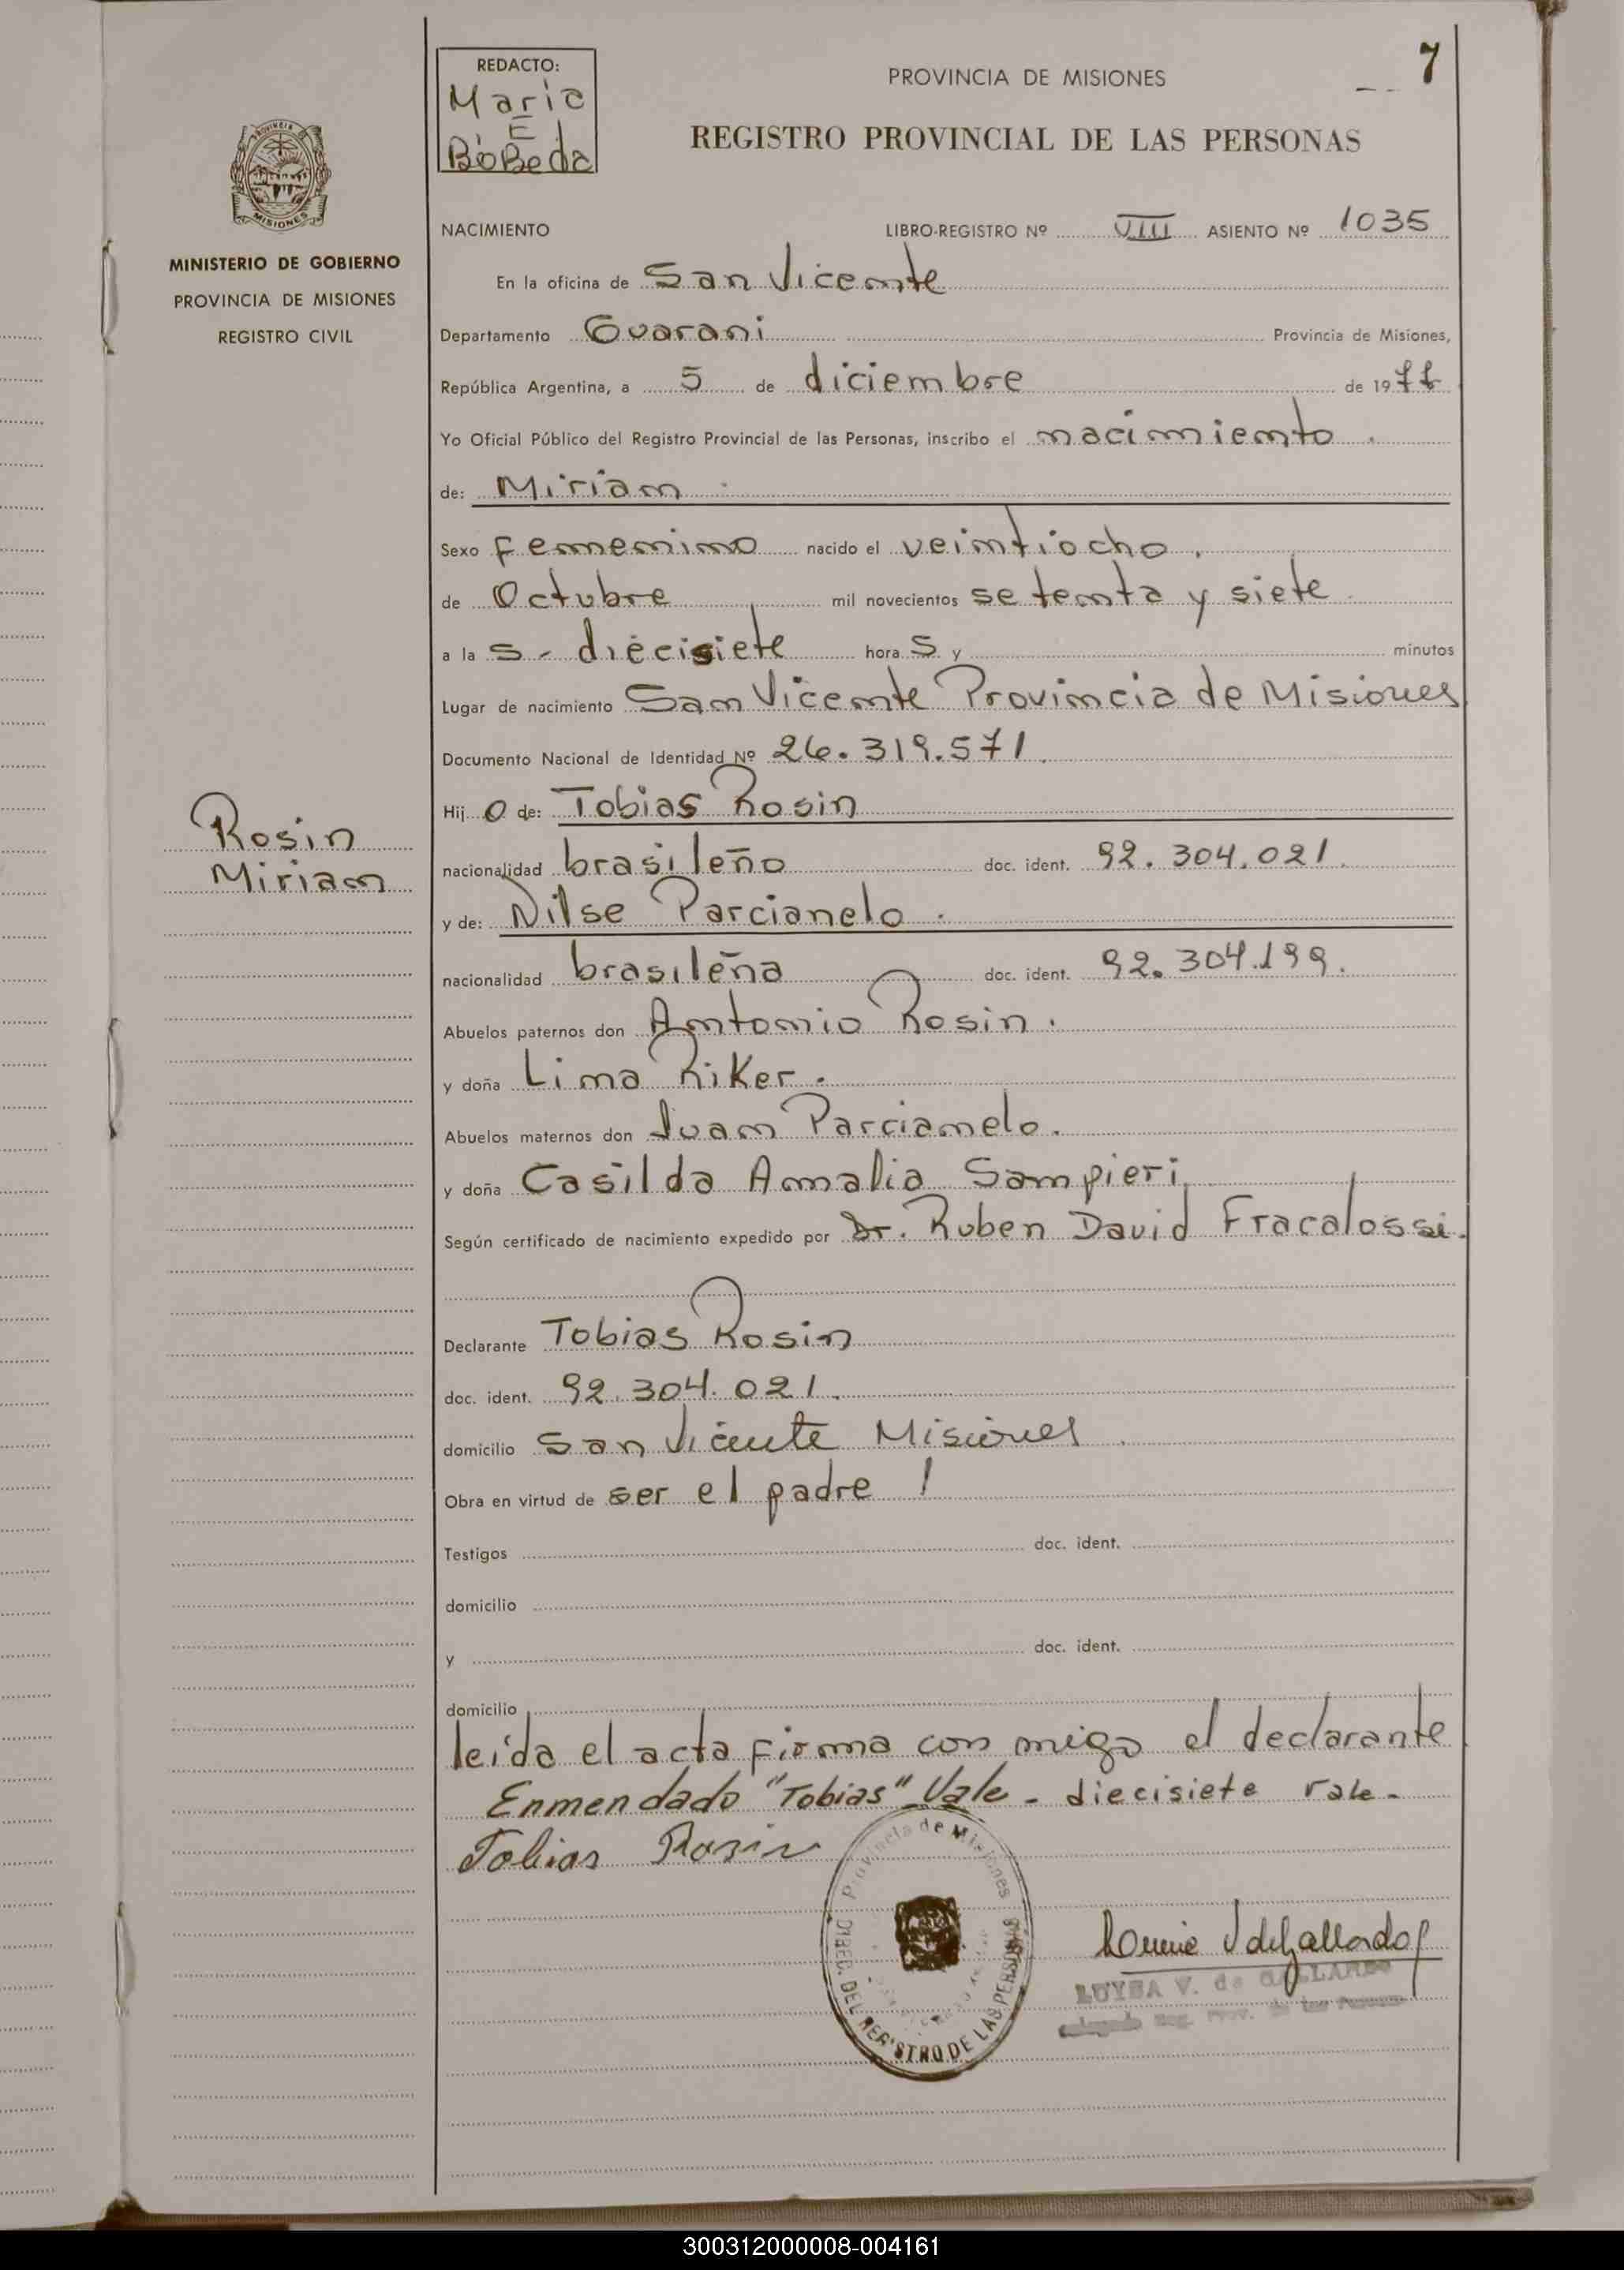 7
REDACTO:
Maria
E
BóBeda
PROVINCIA DE MISIONES
REGISTRO PROVINCIAL DE LAS PERSONAS
PROVINCIA
MISIONES
MINISTERIO DE GOBIERNO
PROVINCIA DE MISIONES
REGISTRO CIVIL
NACIMIENTO LIBRO-REGISTRO Nº VIII ASIENTO Nº 1035
En la oficina de San Vicente
Departamento Guarani Provincia de Misiones,
República Argentina, a 5 de diciembre de 1977
Yo Oficial Público del Registro Provincial de las Personas, inscribo el nacimiento.
de: Miriam
Sexo Femenino nacido el veintiocho.
de Octubre mil novecientos setenta y siete
a la s - diecisiete hora s y minutos
Lugar de nacimiento San Vicente Provincia de Misiones
Documento Nacional de Identidad Nº 26.319.571.
Hij o de: Tobias Rosin
Rosin
Miriam
nacionalidad brasileño doc. ident. 92.304.021.
y de: Nilse Parcianelo.
nacionalidad brasileña doc. ident. 92.304.199.
Abuelos paternos don Antonio Rosin.
y doña Lima Riker.
Abuelos maternos don Juan Parcianelo.
y doña Casilda Amalia Sampieri.
Según certificado de nacimiento expedido por Dr. Ruben David Fracalossi.
Declarante Tobias Rosin
doc. ident. 92.304.021.
domicilio San Vicente Misiones.
Obra en virtud de ser el padre
Testigos doc. ident.
domicilio
y doc. ident.
domicilio
leida el acta firma con migo el declarante
Enmendado "Tobias" Vale - diecisiete vale.
Tobias Rosin
Provincia de Misiones
DIREC. DEL REGISTRO DE LAS PERSONAS
LUYSA V. de GALLARDO
300312000008-004161